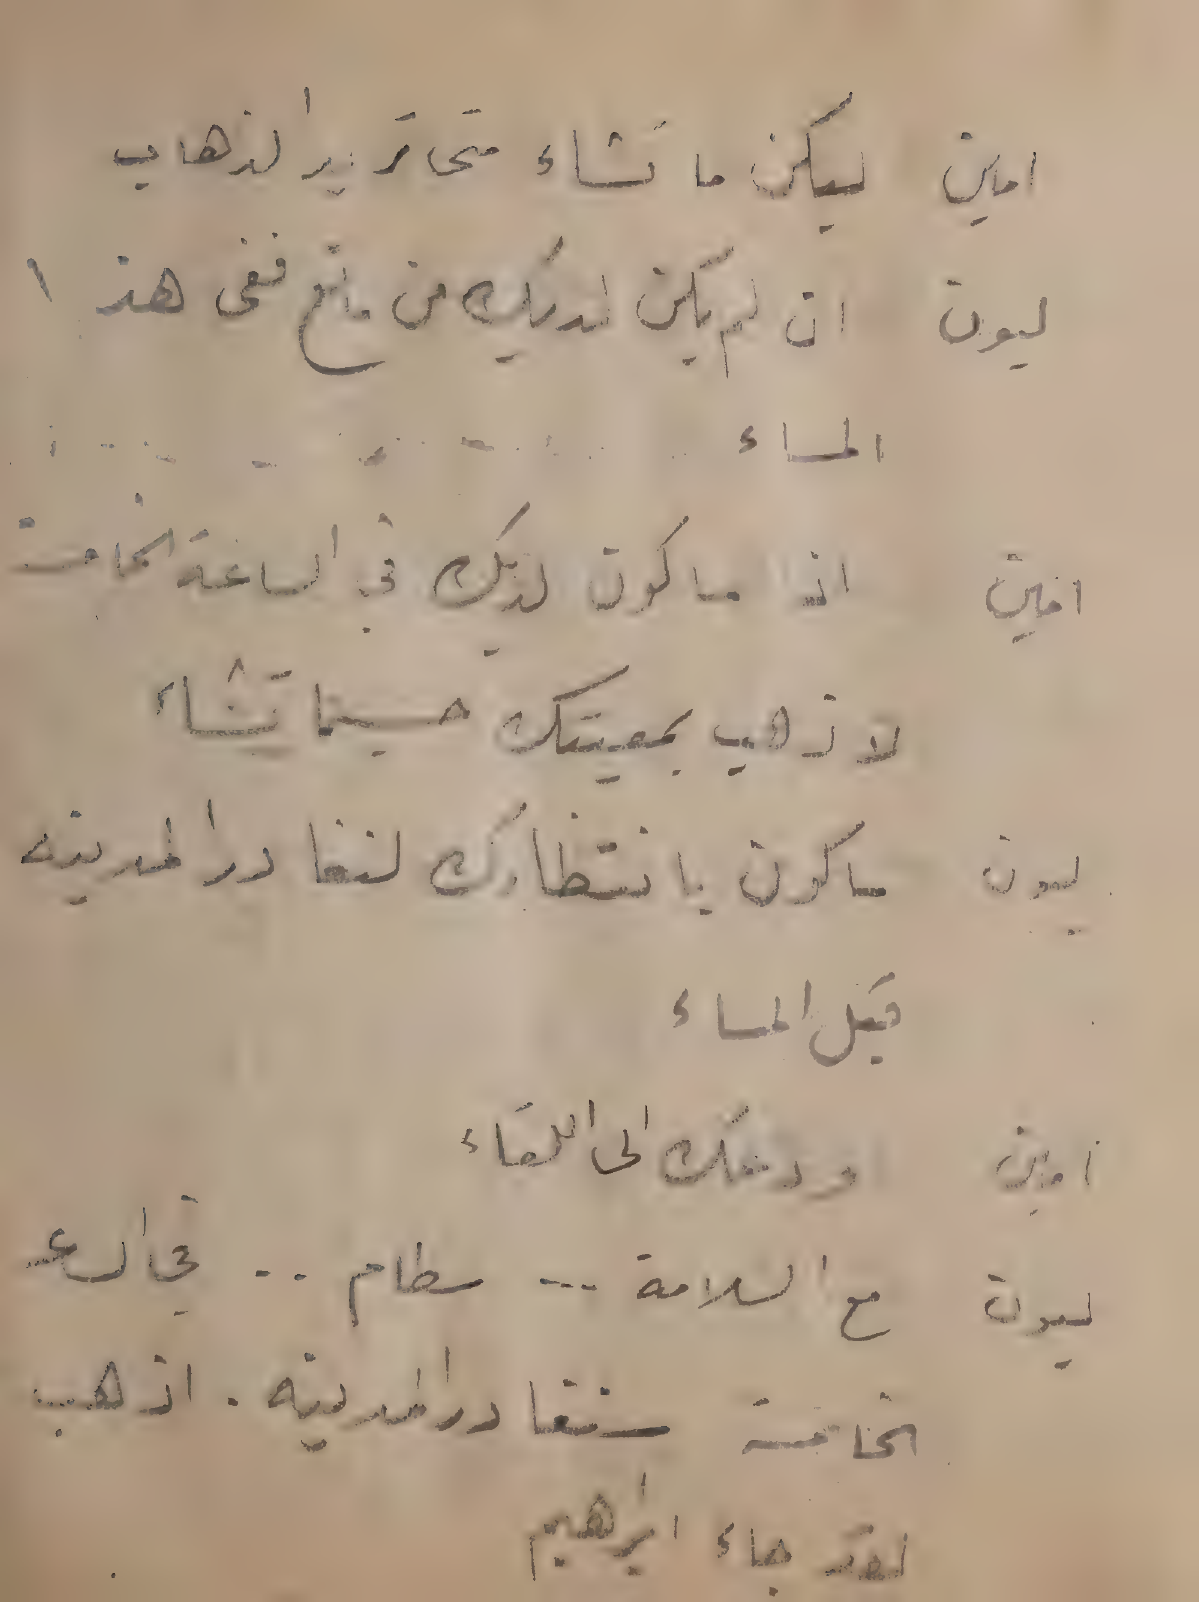 امين ليكن ما تشاء متى تريد الذهاب
ليون ان لم يكن لديك من مانع ففي هذا
المساء
امين اذا سأكون لديك في الساعة الخامسة
لاذهب بمعيتك حسبما تشاء
ليون سأكون بانتظارك لنغادر المدينه
قبل المساء
امين اودعك الى اللقاء
ليون مع السلامة --- سطام .. في الساعه
الخامسة سنغادر المدينه . اذهب
لقد جاء ابراهيم